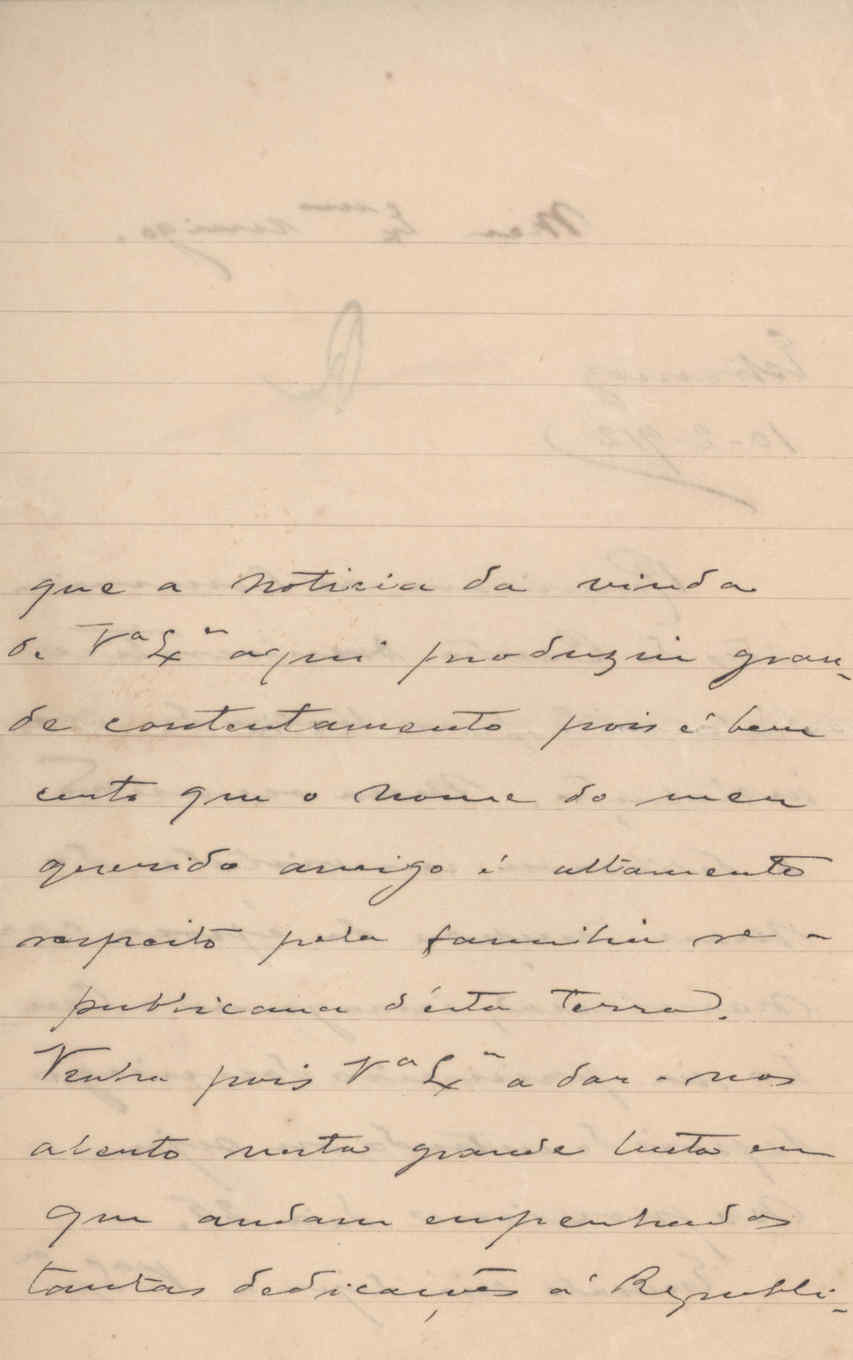 que a noticia da vinda
de Vª Exª aqui produziu gran-
de contentamento pois é bem
certo que o nome do meu
querido amigo é altamente
respeito pela familia re-
publicana d'esta terra.
Venha pois Vª Exª a dar-nos
alento nesta grande lucta em
que andam empenhadas
tantas dedicações á Republi-